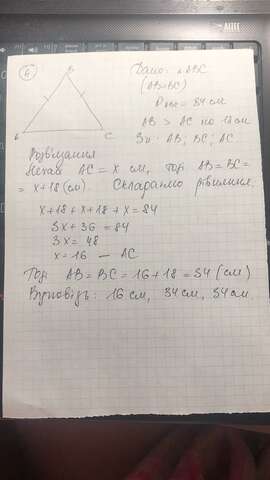 4
B
A
C
Дано: △ABC
(AB=BC)
P△ABC = 84 см
AB > AC на 18 см
Зн: AB; BC; AC
Розв'язання
Нехай AC = x см, тоді AB = BC =
= x + 18 (см). Складаємо рівняння.
x + 18 + x + 18 + x = 84
3x + 36 = 84
3x = 48
x = 16 — AC
Тоді AB = BC = 16 + 18 = 34 (см)
Відповідь: 16 см, 34 см, 34 см.